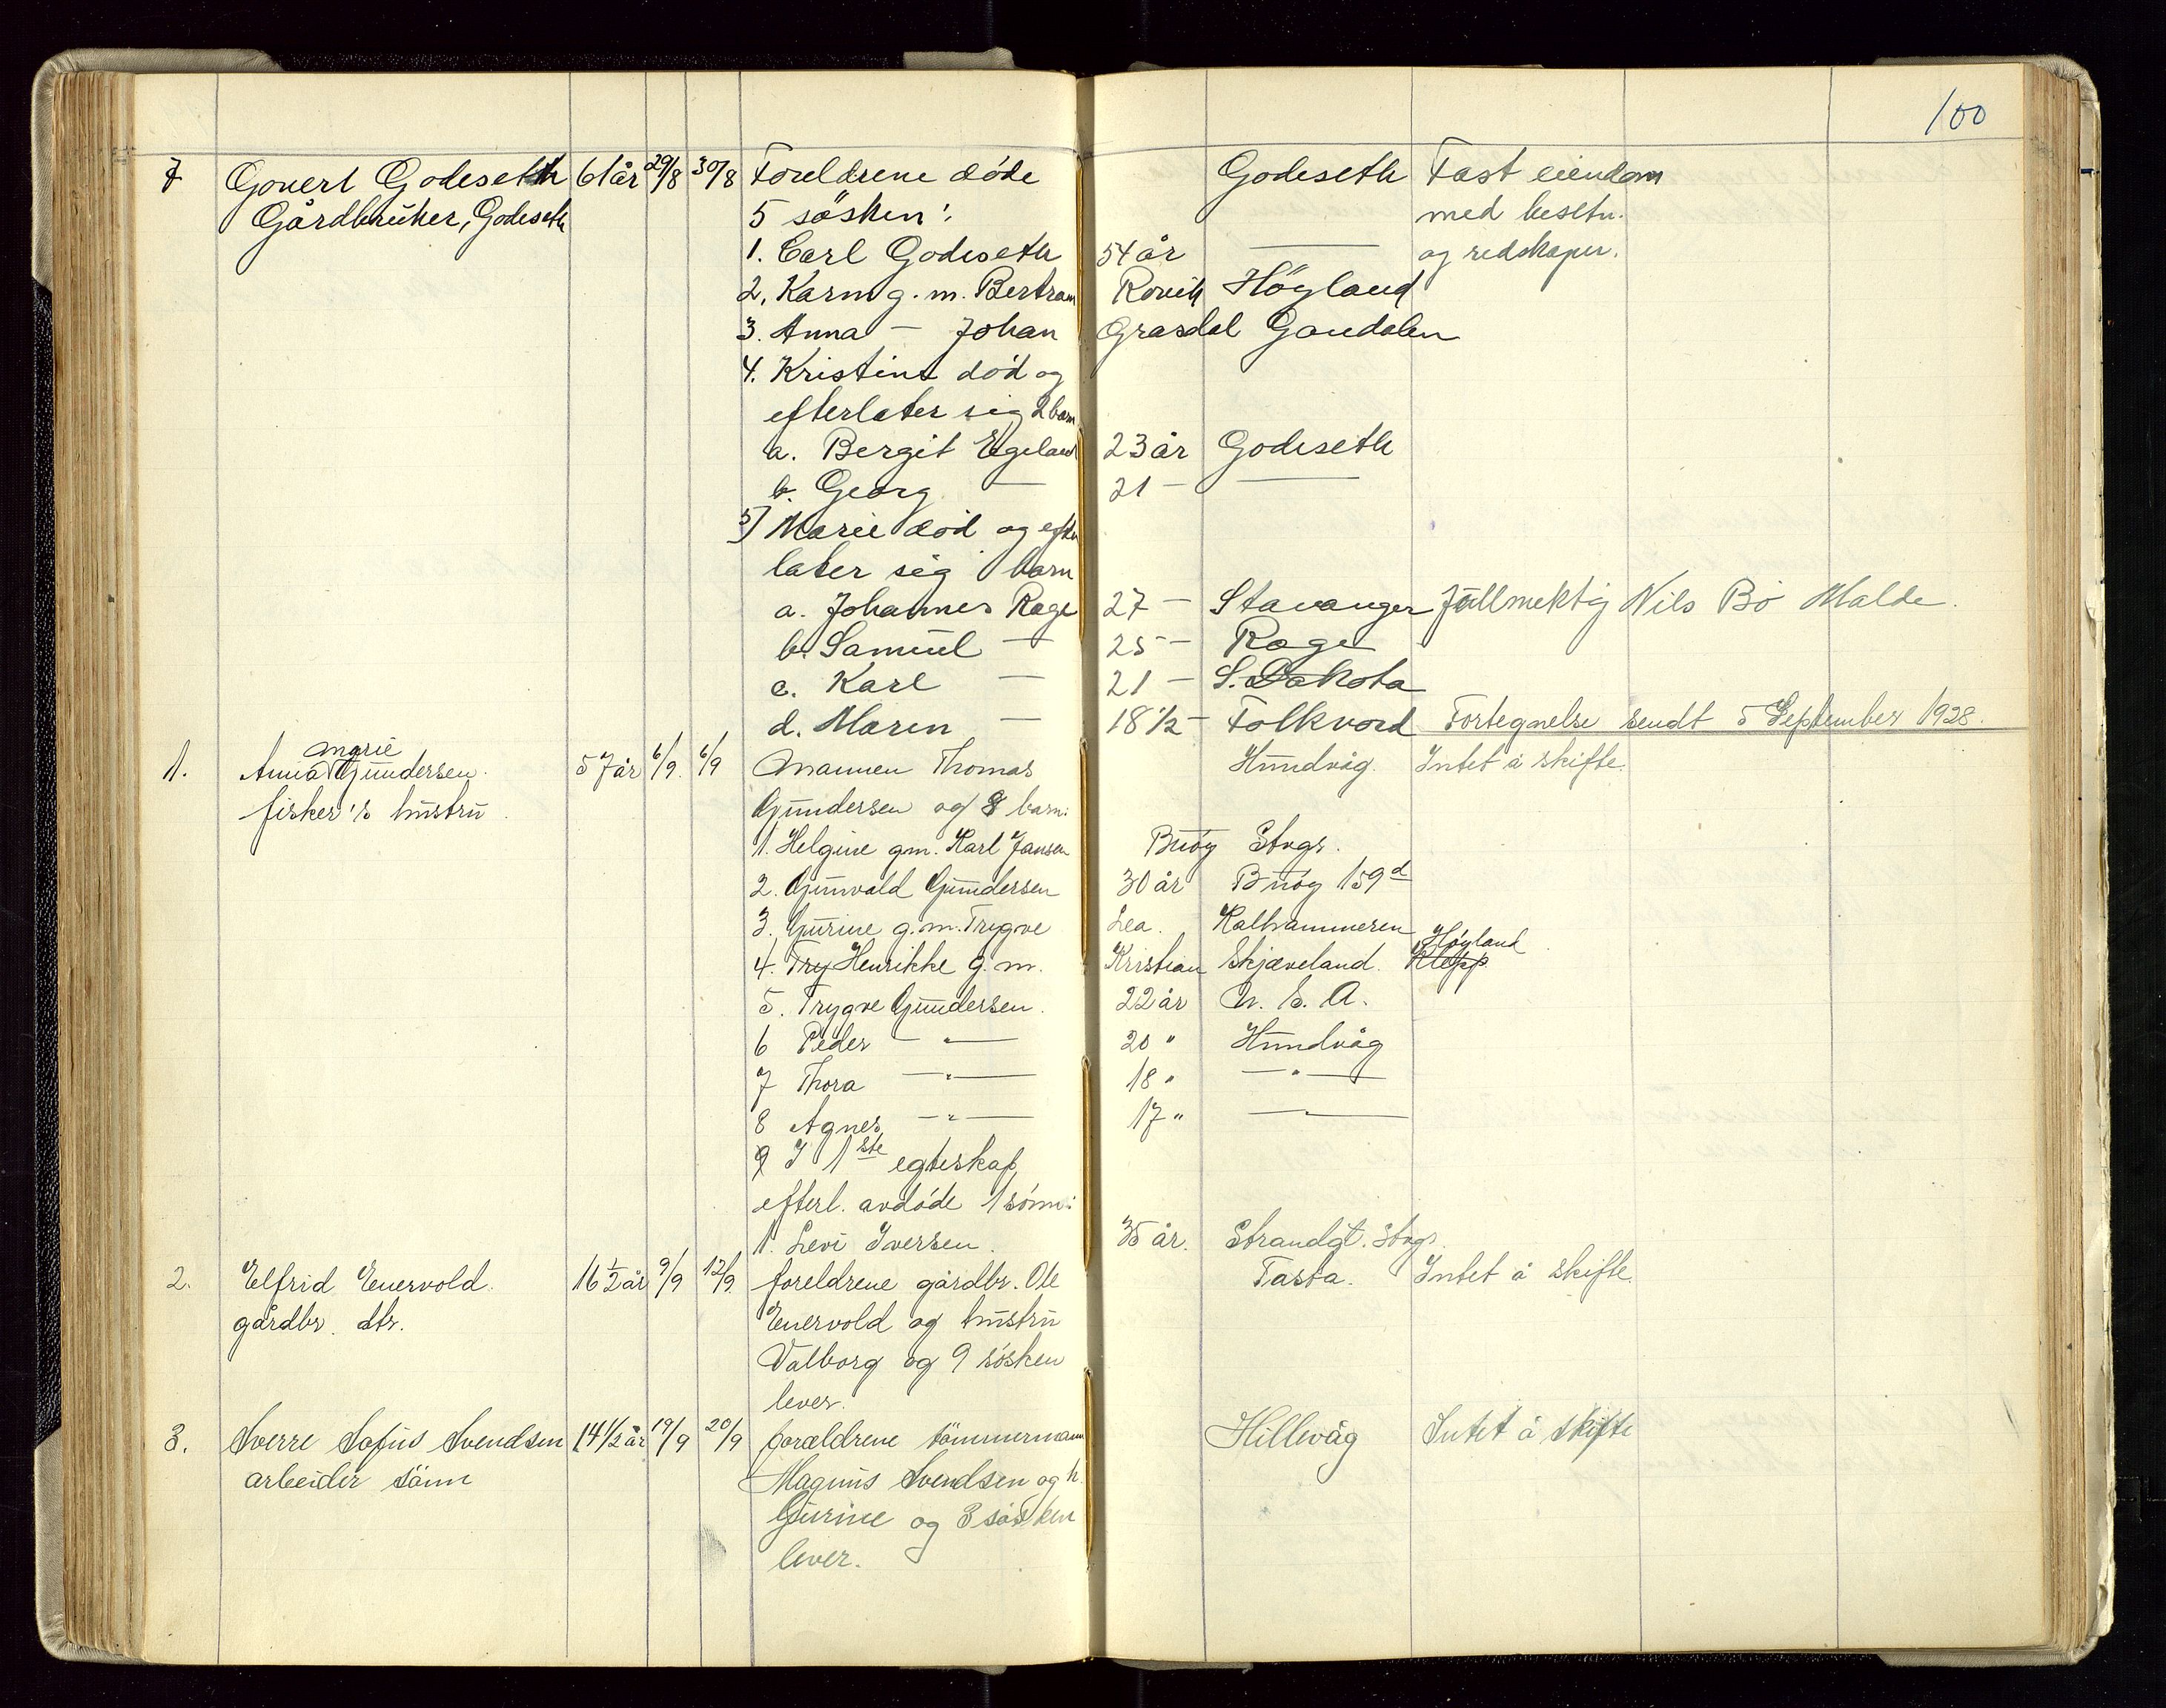 100
7 Govert Godeseth 61 år 29/8 30/8 Foreldrene døde Godeseth Fast eiendom
Gårdbruker, Godeseth 5 søsken: med besetn.
1. Carl Godeseth 54 år — og redskaper.
2. Karn g. m. Bertram Rovik Høyland
3. Anna — Johan Grasdal Gandalen
4. Kristine død og
efterlater sig 2 barn
a. Bergit Egeland 23 år Godeseth
b. Georg — 21 — —
5) Marie død og efter
later sig barn
a. Johannes Rage 27 — Stavanger Fullmektig Nils Bø Malde.
b. Samuel — 25 — Rage
c. Karl — 21 — S. Dakota
d. Maren — 18 1/2 — Folkvord Fortegnelse sendt 5 September 1928.
1. Anna Marie Gundersen. 57 år 6/9. 6/9 Mannen Thomas Hundvåg. Intet å skifte.
fisker's hustru. Gundersen og 8 barn:
1. Helgine gm. Karl Jansen Buøy Stvgr.
2. Gunvald Gundersen 30 år Buøy 159d
3. Gurine g.m. Trygve Lea. Kalhammeren
4. Try Henrikke g. m. Kristian Skjæveland. Klepp Høyland
5. Trygve Gundersen. 22 år U. S. A.
6 Peder — " — 20 " Hundvåg
7 Thora — " — 18 " — " —
8 Agnes — " — 17 " —
9 I 1ste egteskap
efterl. avdøde 1 sønn:
1. Levi Iversen. 35 år. Strandgt. Stvgr.
2. Elfrid Enervold. 16 1/2 år 9/9 12/9. foreldrene gårdbr. Ole Tasta. Intet å skifte.
gårdbr. dtr. Enervold og hustru
Valborg og 9 søsken
lever.
3. Sverre Sofus Svendsen 14 1/2 år 19/9 20/9 foreldrene tömmermann Hillevåg Intet å skifte
arbeider sönn Magnus Svendsen og h.
Gurine og 3 søsken
lever.